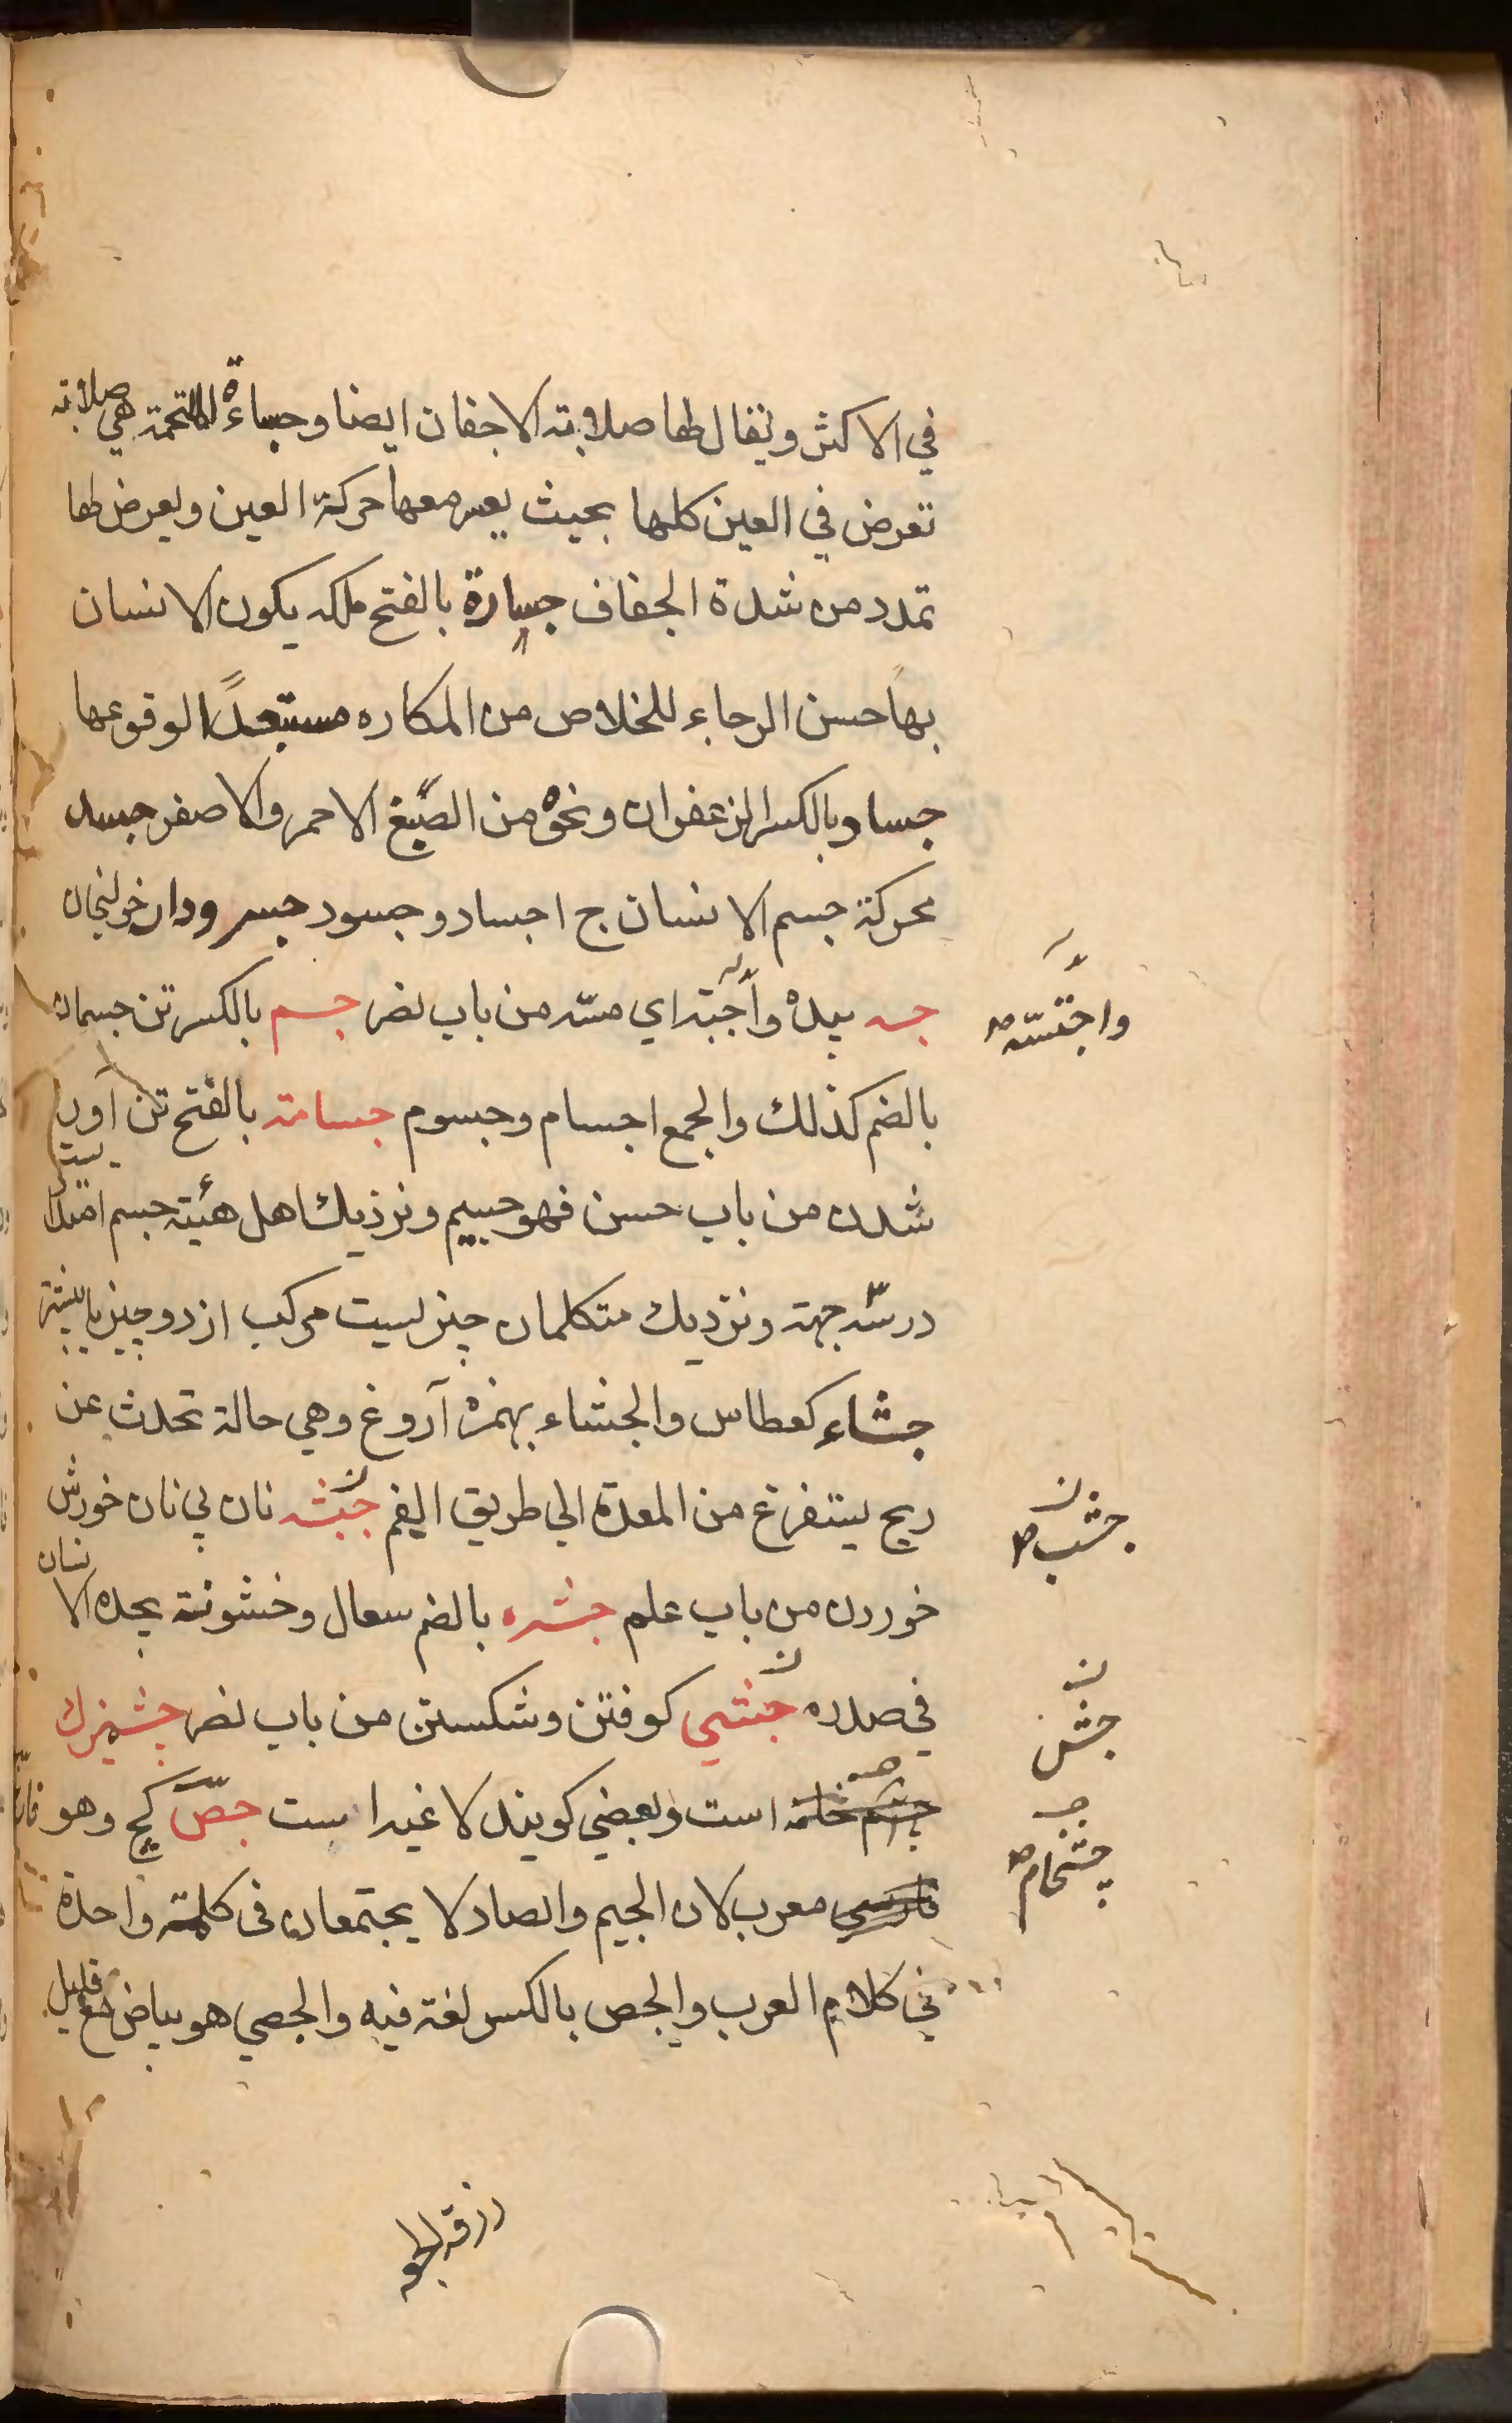 في الاكثر ويقال لها صلابة الاجفان ايضا وجساءة الملتحمة هي صلابة
تعرض في العين كلها بحيث يعسر معها حركة العين ويعرض لها
تمدد من شدة الجفاف جسارة بالفتح ملكه يكون الانسان
بها حسن الرجاء للخلاص من المكاره مستبعدًا لوقوعها
جساد بالكسر الزعفران ونحوه من الصبغ الاحمر والاصفر جسد
محركة جسم الانسان ج اجساد وجسود جسرودار خولنجان
جسه بيده واجته اي مسّه من باب نصر جسم بالكسر تن جسمان
واجتسّه صح
بالضم كذلك والجمع اجسام وجسوم جسامته بالفتح تن آور
شدن من باب حسن فهو جسيم ونزديك اهل هئية جسم امتداد
درسّه جهته ونزديك متكلمان چيزيست مركب از دو چيز يا بيشتر
جشاء كعطاس والجشاء بهمزه آروغ وهي حالة تحدث عن
ريح يتفرغ من المعدة الي طريق الفم جبشه نان بي نان خورش
جشب صح
خوردن من باب علم جشره بالضم سعال وخشونة يجده الانسان
في صدره جشي كوفتن وشكستن من باب نصر چشميزك
جش
چشم خامه است وبعضي كويند لا غير است جصّ كچ وهو
چشخام صح
فارسي معرب لان الجيم والصاد لا يجتمعان في كلمة واحدة
في كلام العرب والجص بالكسر لغة فيه والجصي هو بياض مع قليل
زرقه